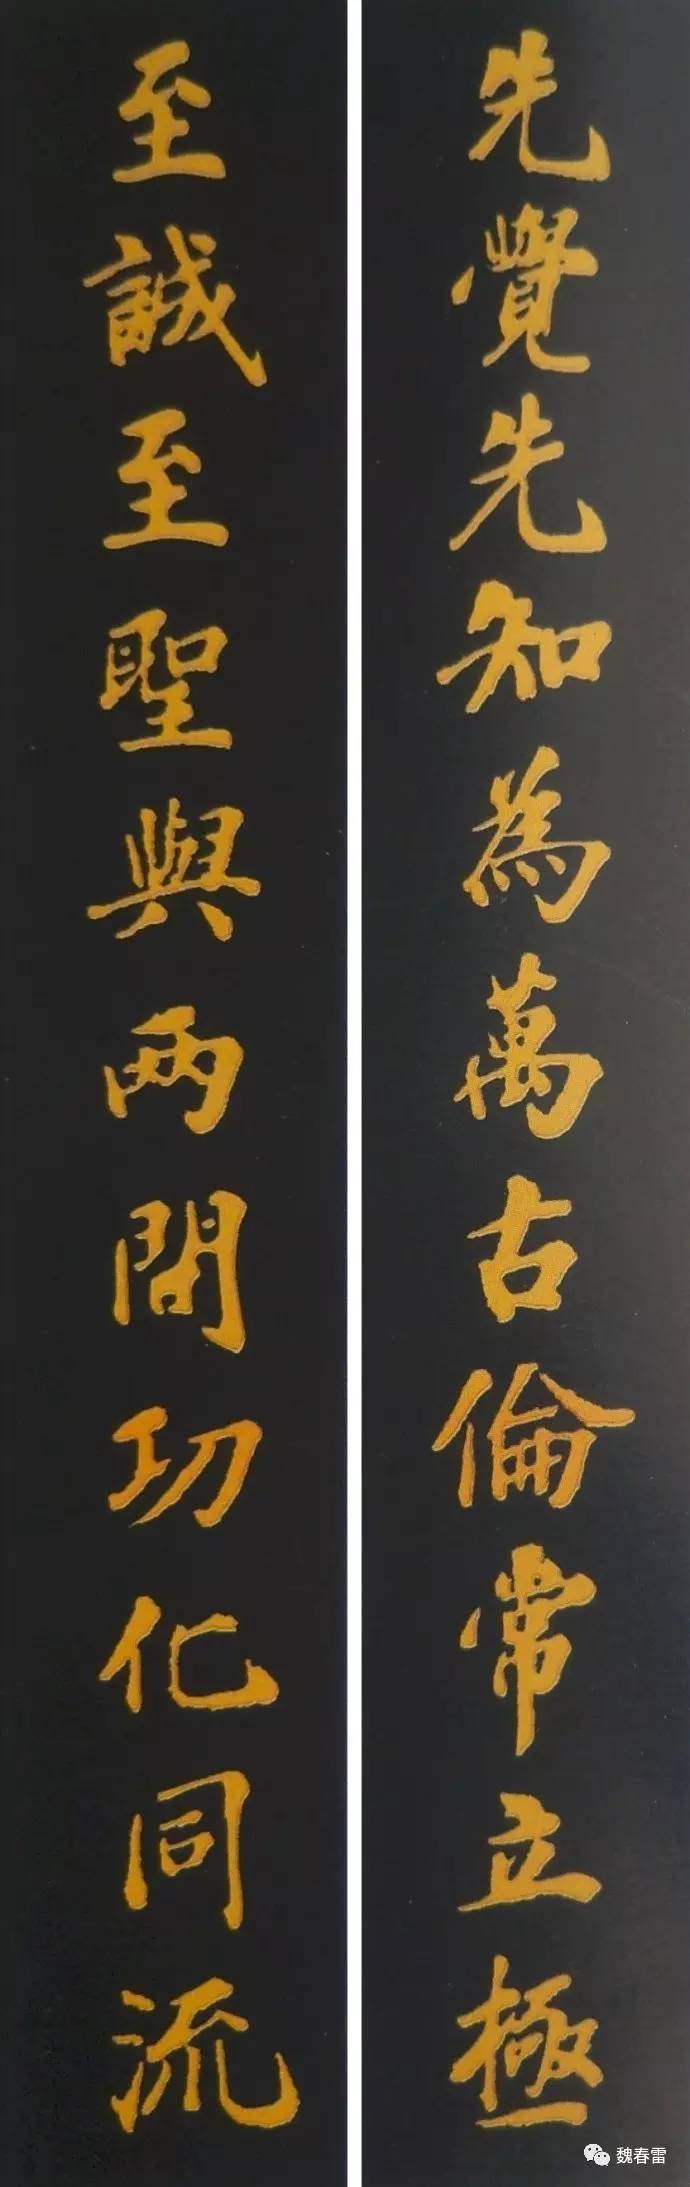 先覺先知為萬古倫常立極
至誠至聖與两間功化同流
魏春雷